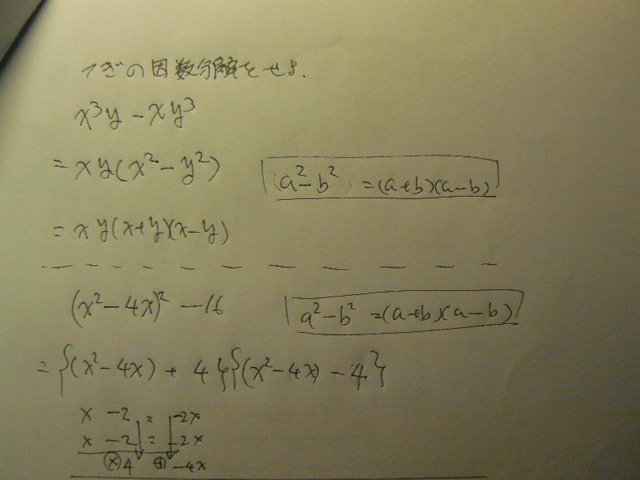 つぎの因数分解をせよ.
x³y - xy³
= xy(x² - y²) (a² - b²) = (a+b)(a-b)
= xy(x+y)(x-y)
(x² - 4x)² - 16 a² - b² = (a+b)(a-b)
= {(x² - 4x) + 4}{(x² - 4x) - 4}
x -2 = -2x
x -2 = -2x
⊗ 4 ⊕ -4x